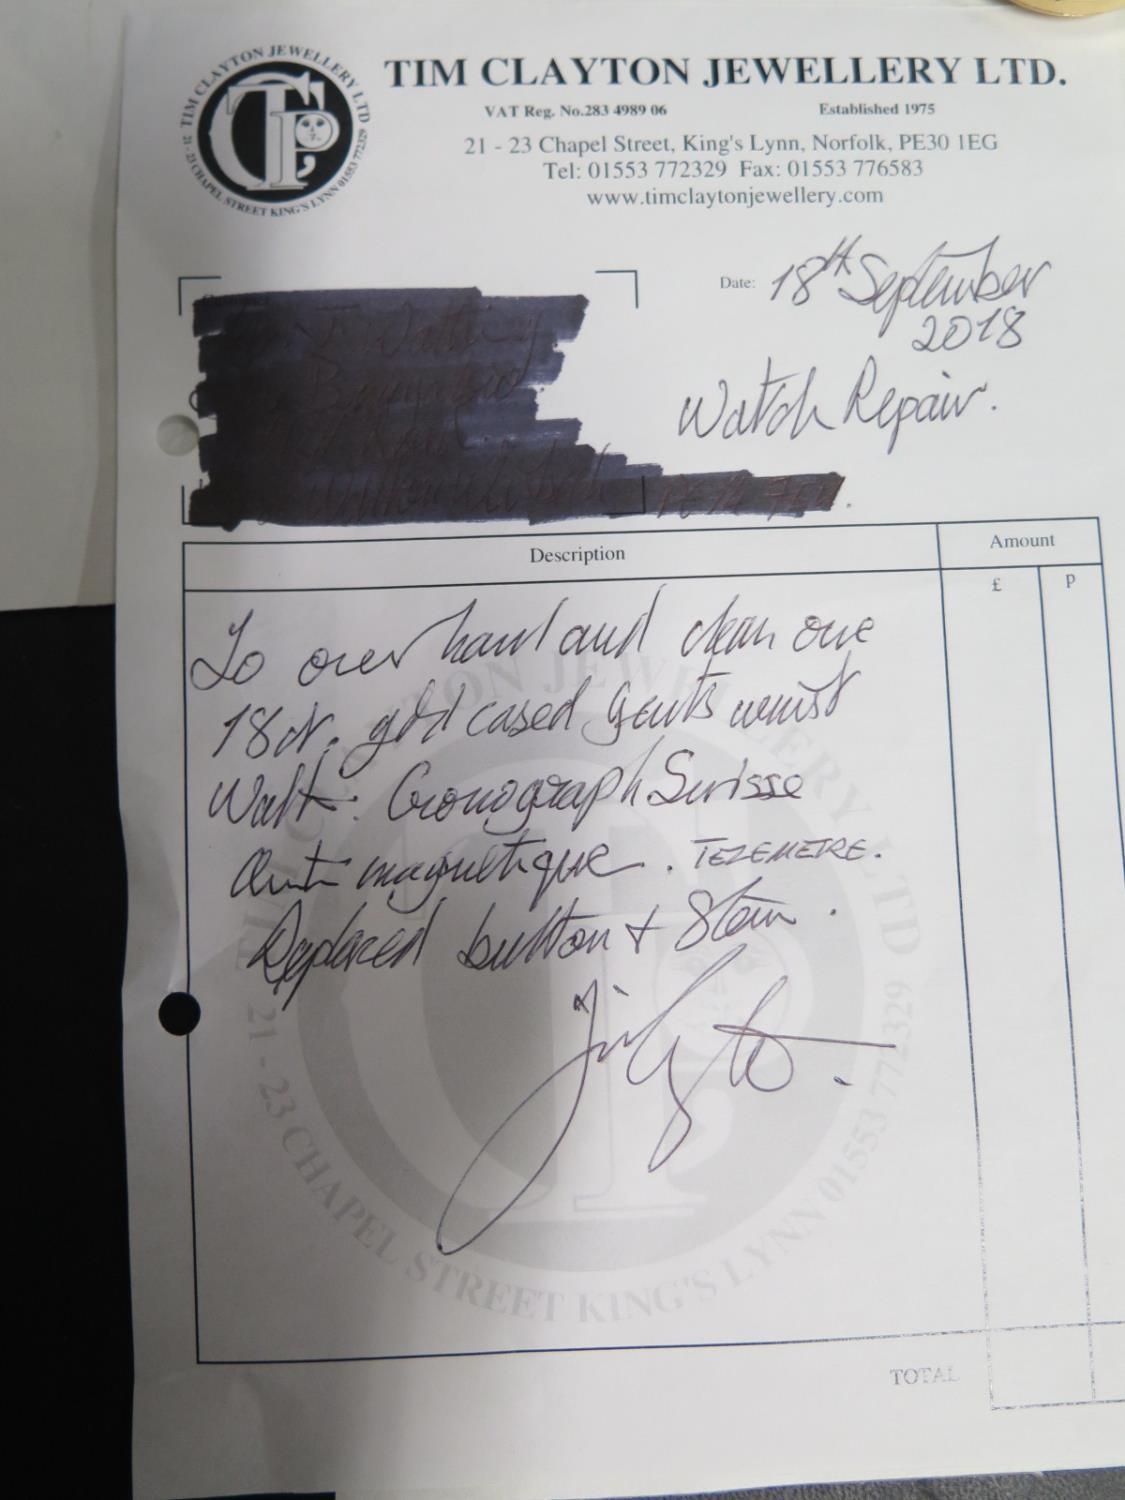 TIM CLAYTON JEWELLERY LTD.
TIM CLAYTON JEWELLERY LTD
21 - 23 CHAPEL STREET KING'S LYNN 01553 772329
VAT Reg. No.283 4989 06 Established 1975
21 - 23 Chapel Street, King's Lynn, Norfolk, PE30 1EG
Tel: 01553 772329 Fax: 01553 776583
www.timclaytonjewellery.com
Date: 18th September
2018
Watch Repair.
Description Amount
£ p
To over haul and clean one
18ct. gold cased gents wrist
Watch. Cronograph Suisse
Anti magnetique. TELEMETRE.
Replaced button + Stem.
TIM CLAYTON JEWELLERY LTD
21 - 23 CHAPEL STREET KING'S LYNN 01553 772329
TOTAL